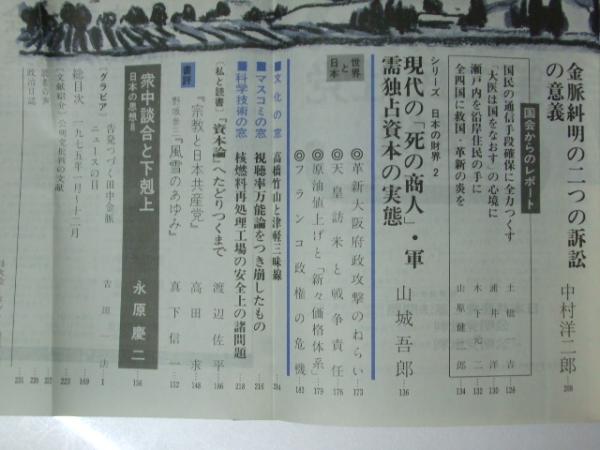 金脈糾明の二つの訴訟
の意義
中村洋二郎
208
国会からのレポート
国民の通信手段確保に全力つくす
土橋一吉
128
「大医は国をなおす」の心境に
浦井洋
130
瀬戸内を沿岸住民の手に
木下元二
132
全四国に救国・革新の炎を
山原健二郎
134
シリーズ 日本の財界 2
現代の「死の商人」・軍
需独占資本の実態
山城吾郎
136
世界と日本
◎革新大阪府政攻撃のねらい
173
◎天皇訪米と戦争責任
176
◎原油値上げと「新々価格体系」
179
◎フランコ政権の危機
182
■文化の窓
高橋竹山と津軽三味線
214
■マスコミの窓
視聴率万能論をつき崩したもの
216
■科学技術の窓
核燃料再処理工場の安全上の諸問題
218
〔私と読書〕
『資本論』へたどりつくまで
渡辺佐平
186
書評
『宗教と日本共産党』
高田求
148
野坂参三『風雪のあゆみ』
真下信一
152
衆中談合と下剋上
日本の思想
永原慶二
156
〔グラビア〕
告発つづく田中金脈
ニュースの目
吉田一法
1
総目次 一九七五年一月～十二月
169
〔文献紹介〕公明党批判の文献
223
読者の声
政治日誌